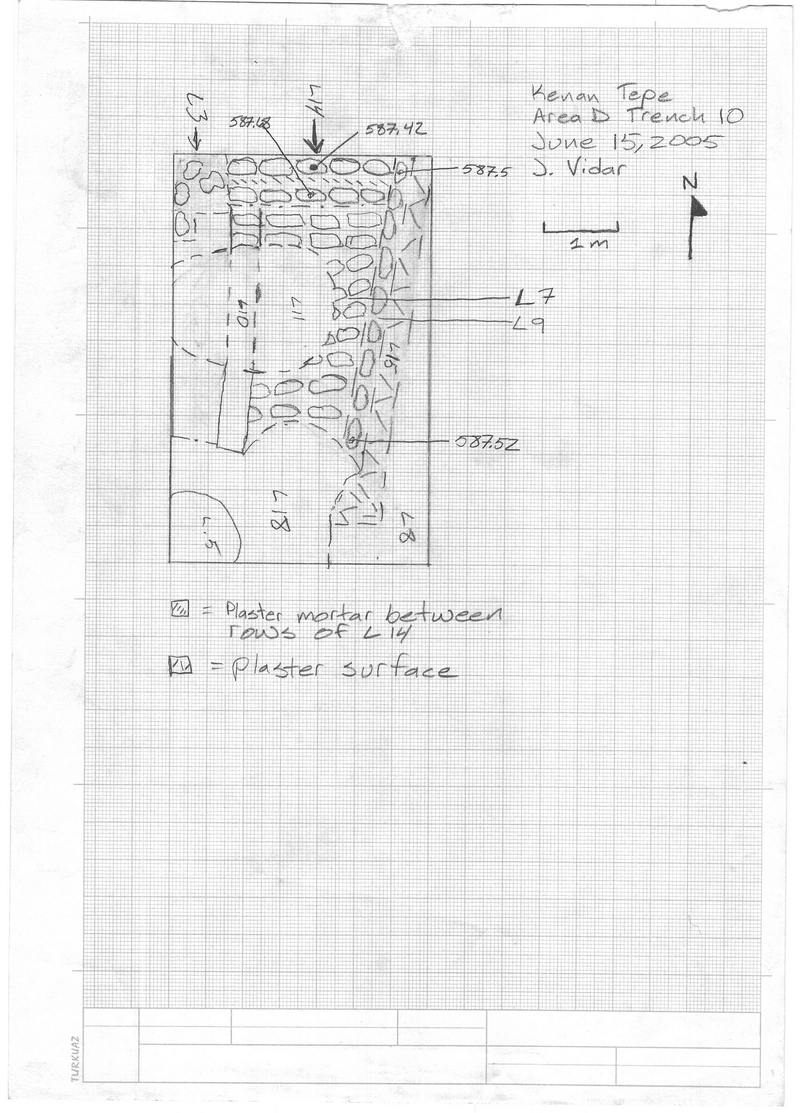 Kenan Tepe
Area D Trench 10
June 15, 2005
J. Vidar
N
1 m
L3
L14
587.48
587.42
587.5
L7
L9
L10
L11
L15
587.52
L18
L8
L.5
= Plaster mortar between
rows of L14
= plaster surface
TURKUAZ